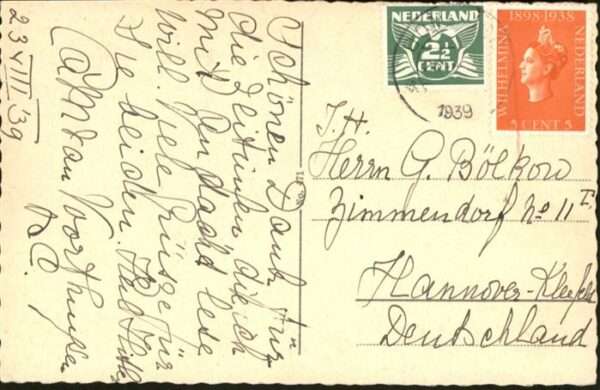 23 VIII '39
Schönen Dank für
die Zeitunken die ich
Mit Andacht lese
Will. Viele Grüsze für
Sie beiden.
NEDERLAND
2½
CENT
1898-1938
WILHELMINA
NEDERLAND
5 CENT 5
1939
Herrn G. Bölkow
Zimmendorf No 11 I
Hannover-Kleefeld
Deutschland